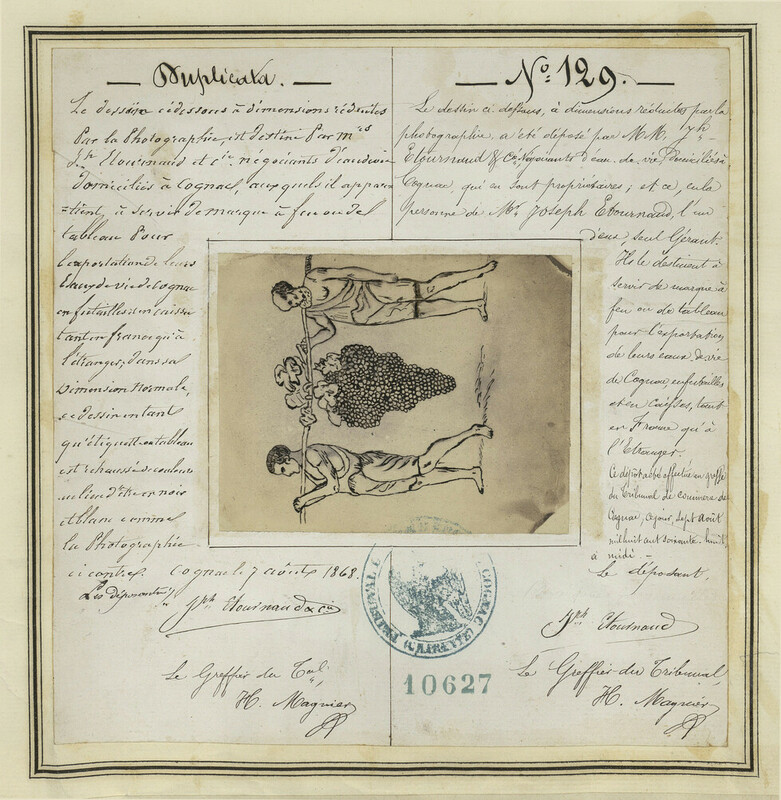 Duplicata.
Le dessin cidessous à dimensions réduites
Par la Photographie, est destiné Par Mrs
Jph Etournaud et Cie negociants d'eaudevie
domiciliés à Cognac, auxquels il appar
=tient, à servir de marque à feu ou de
tableau Pour
l'exportation de leurs
Eaux de vie de Cognac
en futailles et en caisses
tant en france qu'à
l'étranger; dans sa
Dimension Normale,
ce dessin en tant
qu'étiquette ou tableau
est rehaussé de couleurs
au lieu d'être en noir
et blanc comme
la Photographie
ci contre. Cognac le 7 août 1868.
Les déposants,
Jph Etournaud & Cie
Le Greffier du Tal,
H. Magnier
No. 129.
Le dessin ci dessous, à dimensions réduites par la
photographie, a été déposé par MM. Jph
Etournaud & Cie Négociants d'eau de vie domiciliés
Cognac, qui en sont propriétaires; et ce, en la
personne de Mr. Joseph Etournaud, l'un
d'eux, seul Gérant.
Ils le destinent à
servir de marque à
feu ou de tableau
pour l'exportation
de leurs eaux de vie
de Cognac, en futailles
et en caisses, tant
en France qu'à
l'Etranger.
Ce dépôt a été effectué au greffe
du Tribunal de commerce de
Cognac, ce jour, sept Août
mil huit cent soixante-huit
à midi.-
Le déposant,
Jph Etournaud
Le Greffier du Tribunal,
H. Magnier
TRIBUNAL COGNAC (CHARENTE)
10627